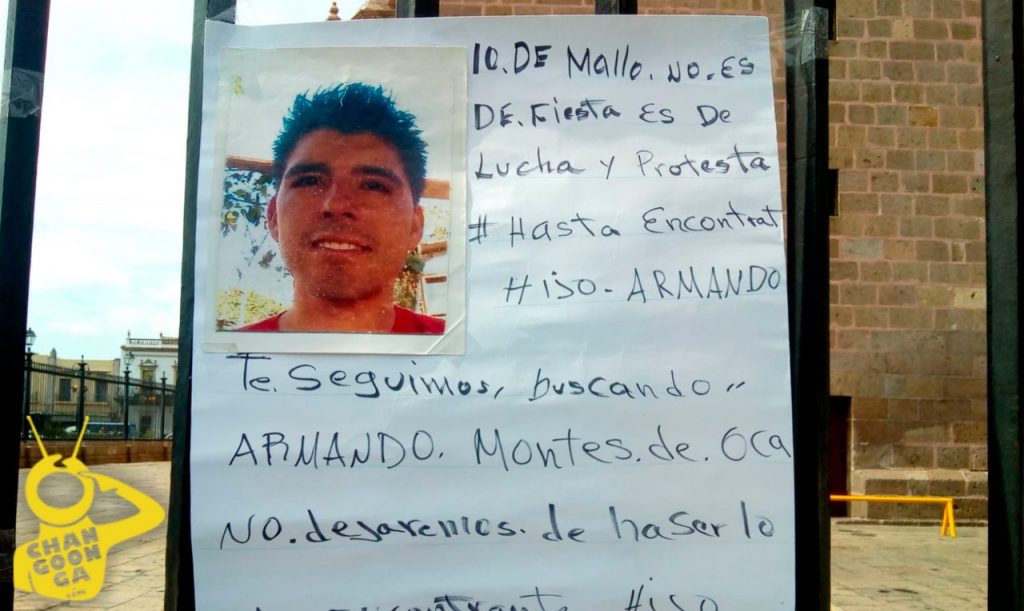 10.DE Mallo.NO.ES
DE.Fiesta ES DE
Lucha y Protesta
# Hasta Encontrat
Hiso-ARMANDO
Te.Seguimos, buscando,,
ARMANDO. Montes.de.Oca
NO.dejaremos.de haserlo
encontrarte Hiso
CHAN
GOON
GA
.com